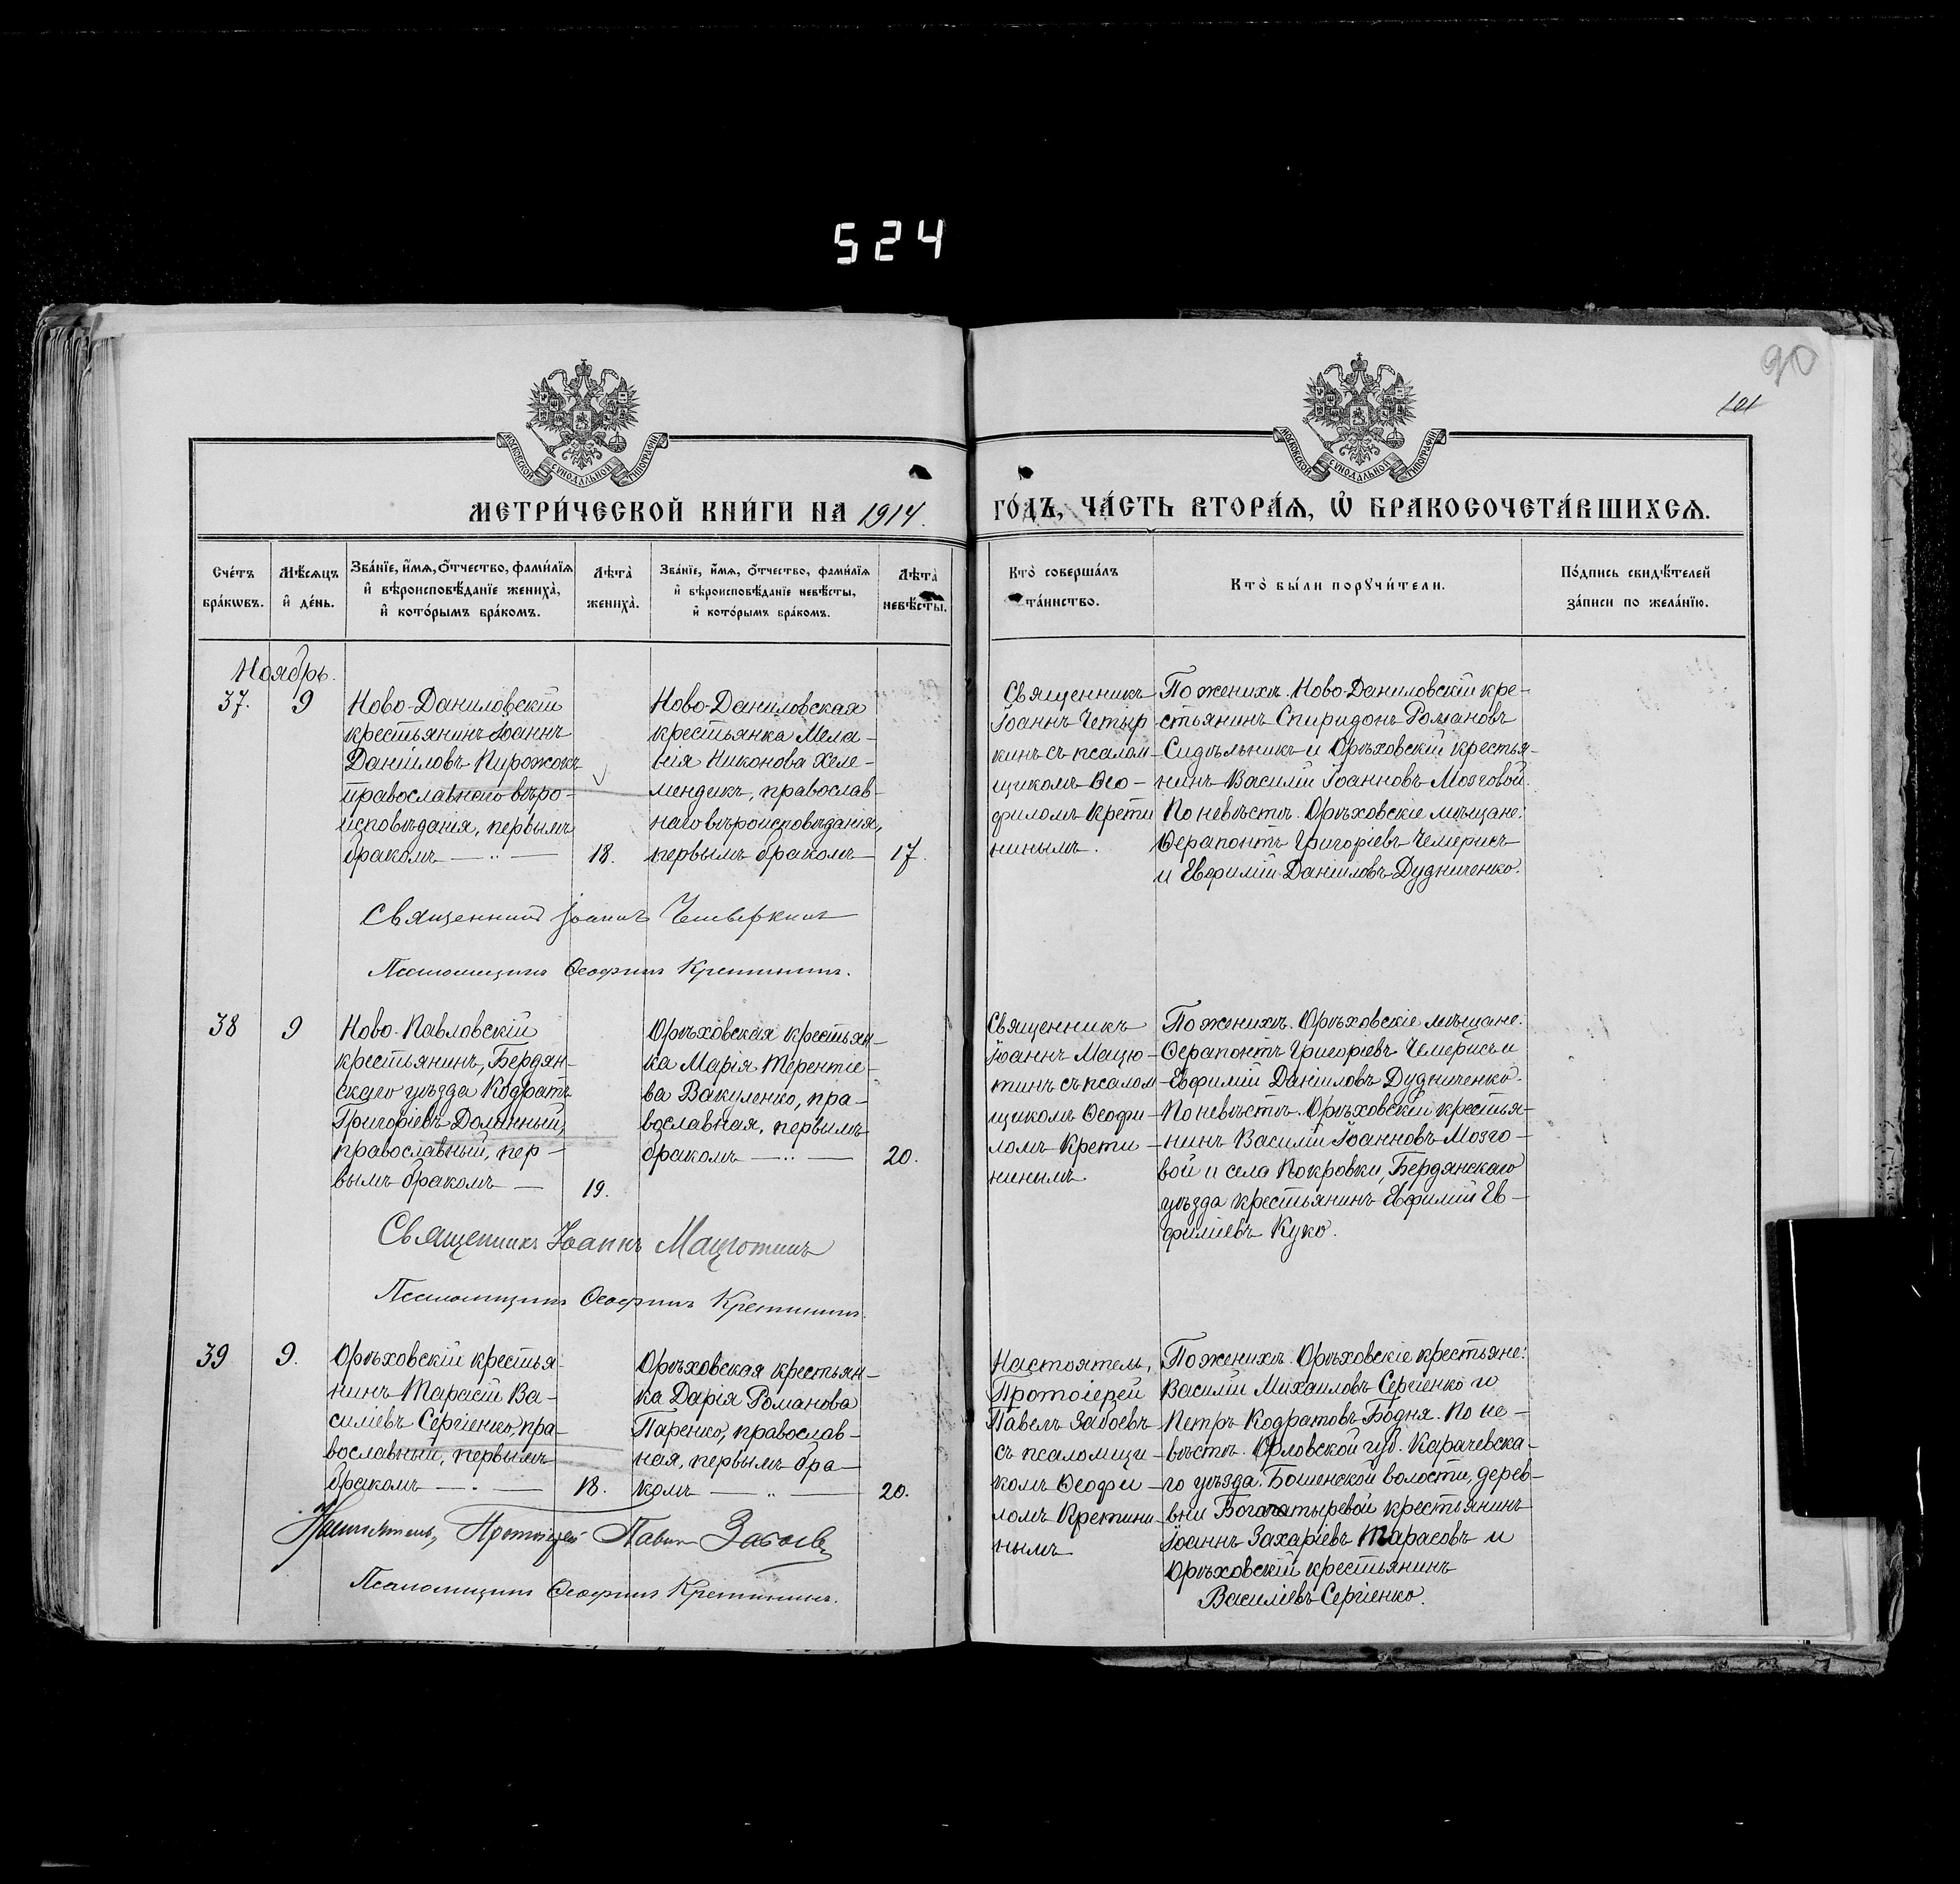 524
90
101
МОСКОВСКОЙ СѴНОДАЛЬНОЙ ТИПОГРАФІИ
МОСКОВСКОЙ СѴНОДАЛЬНОЙ ТИПОГРАФІИ
МЕТРИ́ЧЕСКОЙ КНИ́ГИ НА 1914. ГО́ДЪ, ЧА́СТЬ ВТОРА́Ѧ, Ѡ҆ БРАКОСОЧЕТА́ВШИХСѦ.
Сче́тъ
бра́кѡвъ.
Мѣ́сѧцъ
и҆ де́нь.
Зва́нїе, и҆́мѧ, ѻ҆́тчество, фами́лїѧ
и҆ вѣроисповѣ́данїе жениха̀,
и҆ кото́рымъ бра́комъ.
Лѣта̀
жениха̀.
Зва́нїе, и҆́мѧ, ѻ҆́тчество, фами́лїѧ
и҆ вѣроисповѣ́данїе невѣ́сты,
и҆ кото́рымъ бра́комъ.
Лѣта̀
невѣ́сты.
Кто̀ соверша́лъ
та́инство.
Кто̀ бы́ли порꙋчи́тели.
По́дпись свидѣ́телей
за́писи по жела́нїю.
Ноябрь.
37.
9
Ново-Даниловскій
крестьянинъ Іоаннъ
Даніиловъ Пирожокъ
православнаго вѣро-
исповѣданія, первымъ
бракомъ — „ —
18.
Ново-Даниловская
крестьянка Мела-
нія Никонова Хеле-
мендикъ, православ-
наго вѣроисповѣданія,
первымъ бракомъ —
17.
Священникъ
Іоаннъ Четыр
кинъ съ псалом-
щикомъ Ѳео-
филомъ Крети
нинымъ.
По женихѣ. Ново-Даниловскій кре-
стьянинъ Спиридонъ Романовъ
Сидѣльникъ и Орѣховскій крестья-
нинъ Василій Іоанновъ Мозговой.
По невѣстѣ. Орѣховскіе мѣщане:
Ѳерапонтъ Григоріевъ Чемерисъ
и Евфимій Даніиловъ Дудниченко.
Священникъ Іоаннъ Четыркинъ
Псаломщикъ Ѳеофилъ Кретининъ.
38
9
Ново-Павловскій
крестьянинъ, Бердян-
скаго уѣзда Кодратъ
Григоріевъ Долинный,
православный, пер-
вымъ бракомъ —
19.
Орѣховская крестьян-
ка Марія Терентіе-
ва Вакуленко, пра-
вославная, первымъ
бракомъ — „ —
20.
Священникъ
Іоаннъ Мацю-
тинъ съ псалом-
щикомъ Ѳеофи-
ломъ Крети-
нинымъ
По женихѣ. Орѣховскіе мѣщане:
Ѳерапонтъ Григоріевъ Чемерисъ и
Евфимій Даніиловъ Дудниченко.
По невѣстѣ. Орѣховскій крестья-
нинъ Василій Іоанновъ Мозго-
вой и села Покровки, Бердянскаго
уѣзда крестьянинъ Евфимій Ев-
фиміевъ Куко.
Священникъ Іоаннъ Мацютинъ
Псаломщикъ Ѳеофилъ Кретининъ.
39
9.
Орѣховскій крестья-
нинъ Тарасій Ва-
силіевъ Сергіенко, пра-
вославный, первымъ
бракомъ — „ —
18.
Орѣховская крестьян-
ка Дарія Романова
Паренко, православ-
ная, первымъ бра-
комъ — „ —
20.
Настоятель,
Протоіерей
Павелъ Забоевъ
съ псаломщи-
комъ Ѳеофи-
ломъ Кретини-
нымъ
По женихѣ. Орѣховскіе крестьяне:
Василій Михаиловъ Сергіенко и
Петръ Кодратовъ Бодня. По не-
вѣстѣ. Орловской губ. Карачевска-
го уѣзда, Бошинской волости, дерев-
вни Богатыревой крестьянинъ
Іоаннъ Захаріевъ Тарасовъ и
Орѣховскій крестьянинъ
Василіевъ Сергіенко.
Настоятель, Протоіерей Павелъ Забоевъ
Псаломщикъ Ѳеофилъ Кретининъ.